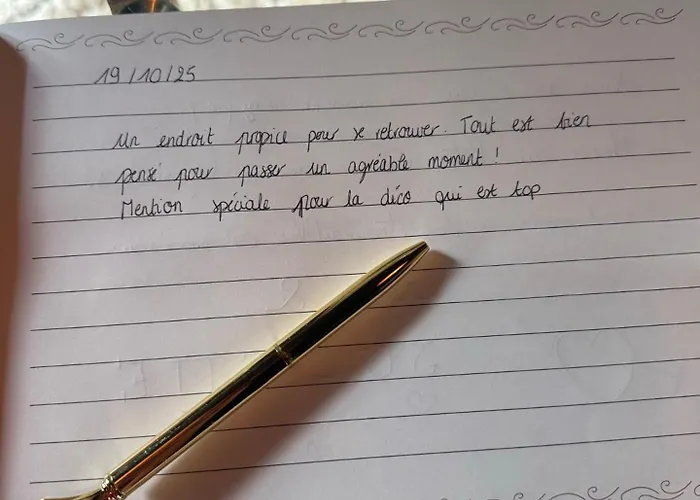 19/10/25
Un endroit propice pour se retrouver. Tout est bien
pensé pour passer un agréable moment !
Mention spéciale pour la déco qui est top